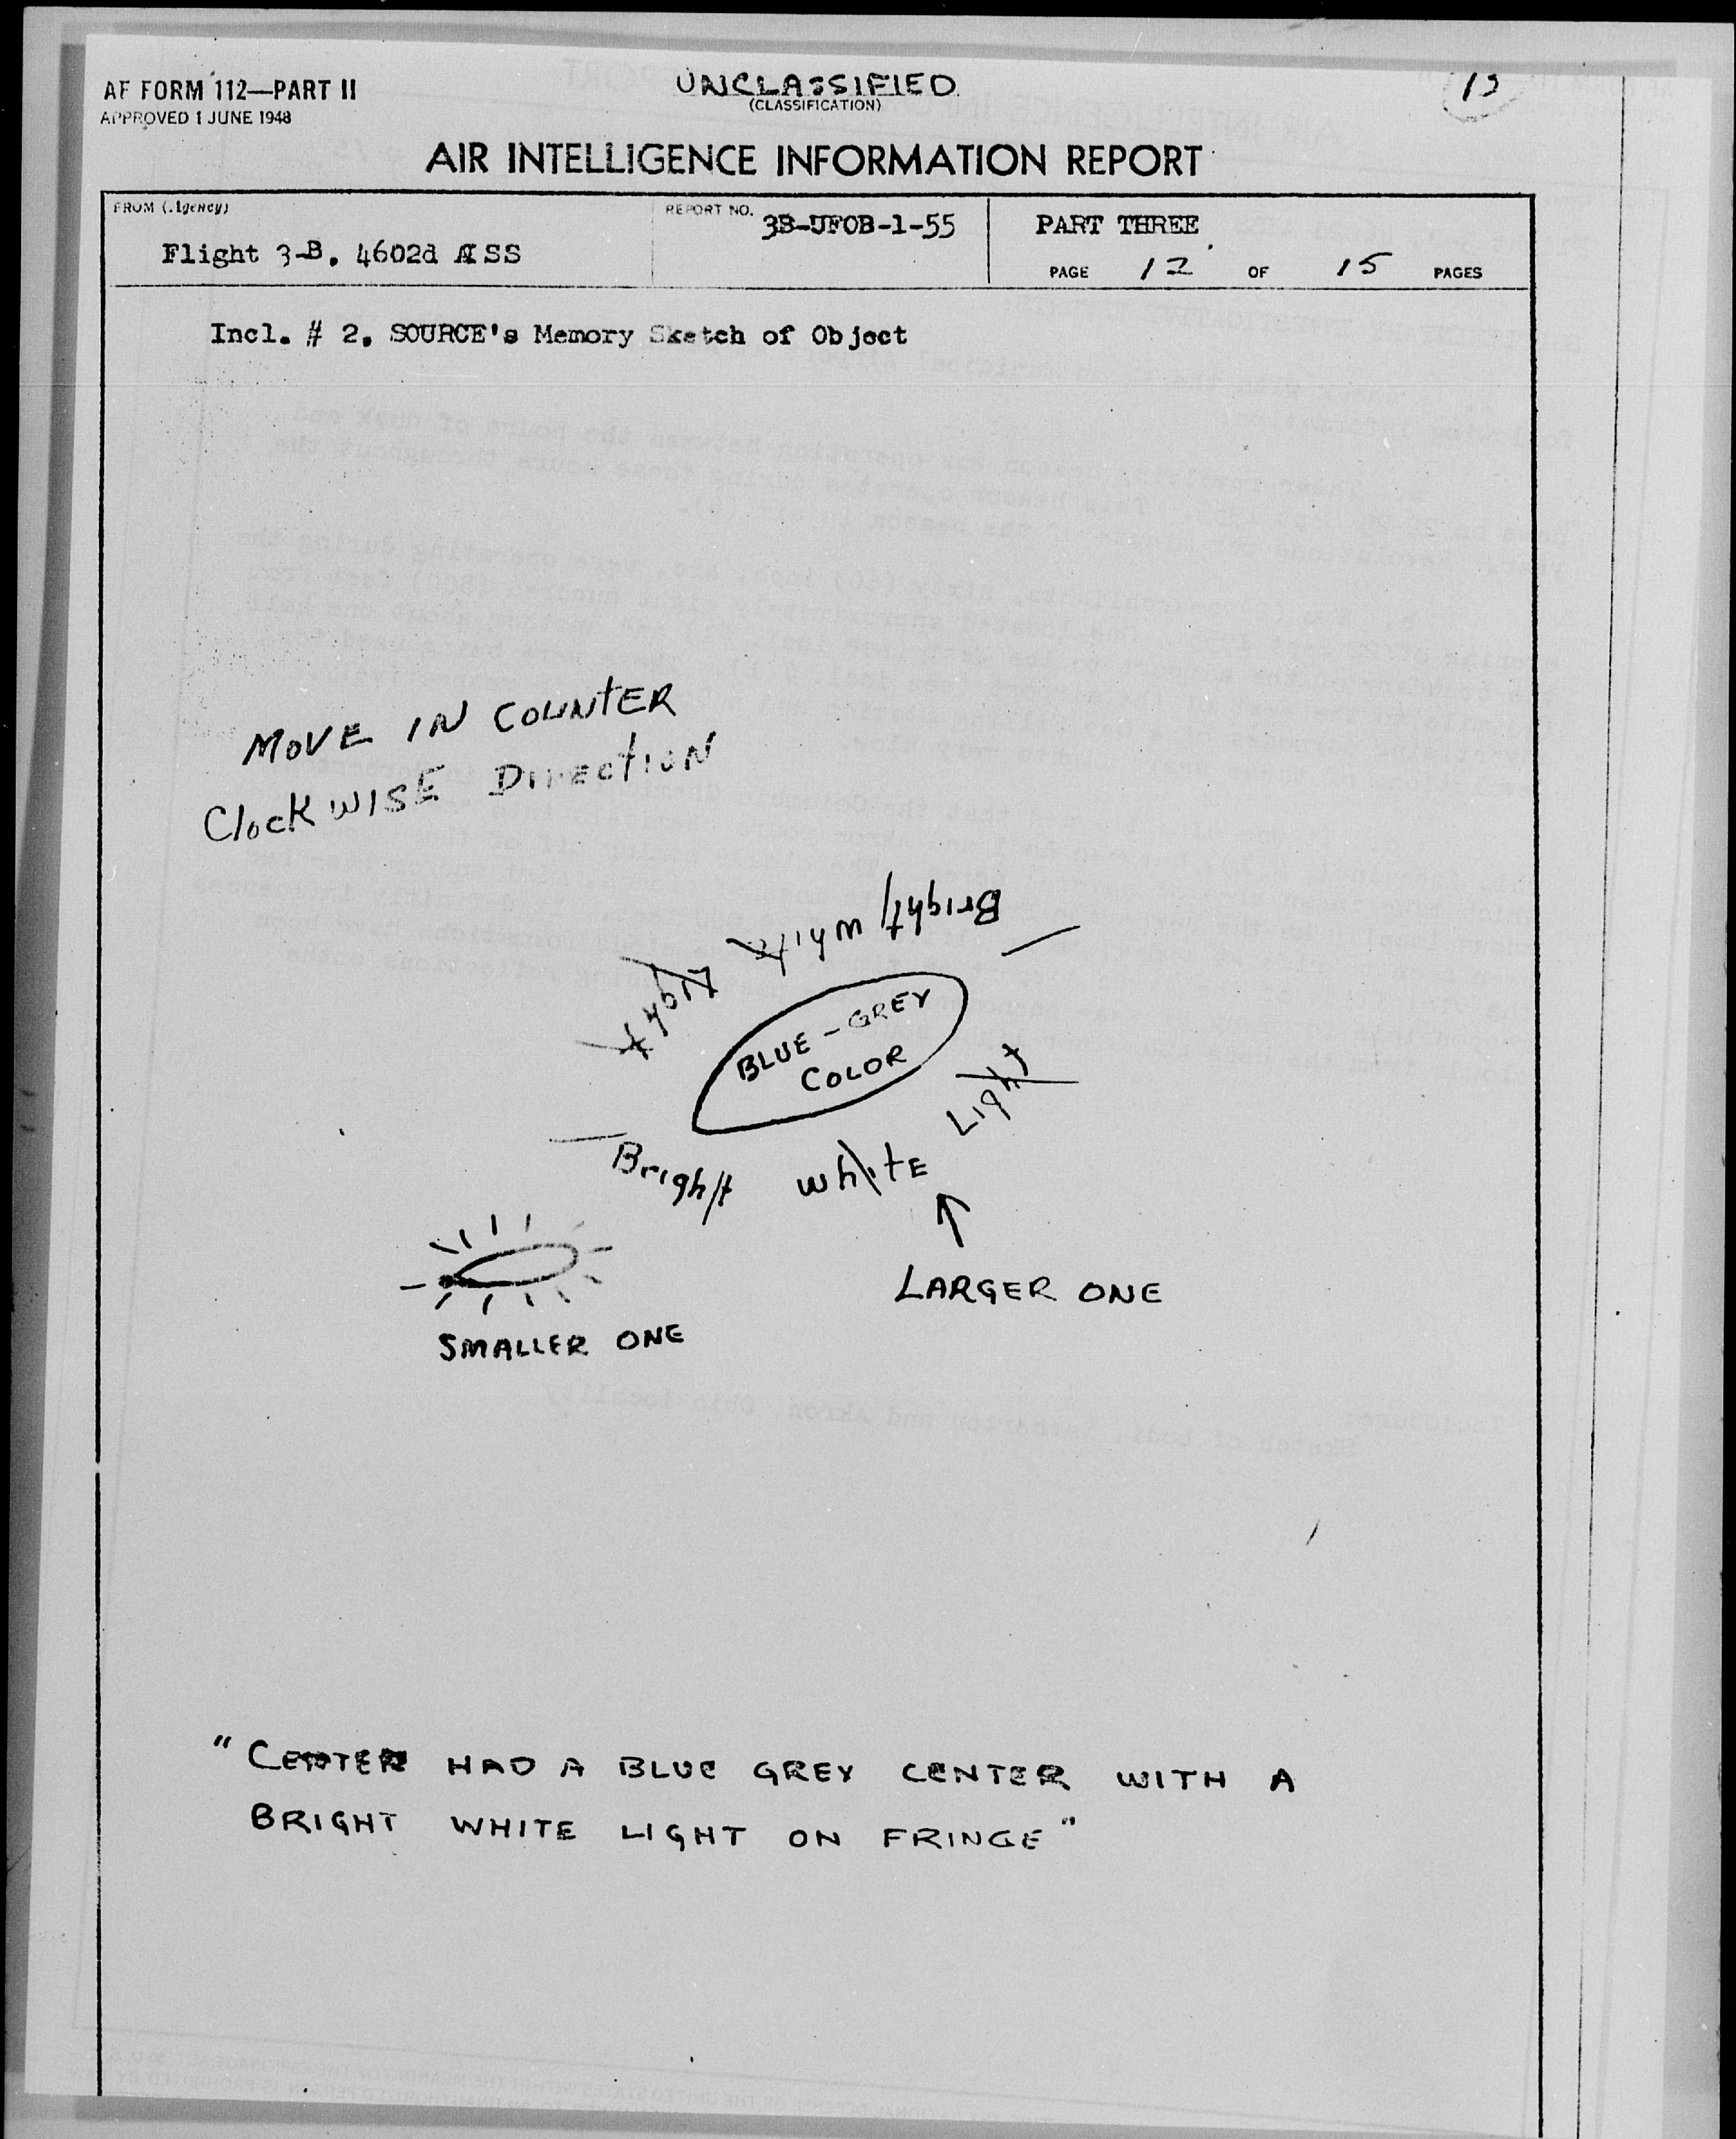 AF FORM 112—PART II
APPROVED 1 JUNE 1948
UNCLASSIFIED
(CLASSIFICATION)
AIR INTELLIGENCE INFORMATION REPORT
FROM (Agency)
Flight 3-B, 4602d AISS
REPORT NO.
3B-UFOB-1-55
PART THREE
PAGE 12 OF 15 PAGES
Incl. # 2. SOURCE's Memory Sketch of Object
MOVE IN COUNTER
ClockWISE DIRECTION
Bright white
Light
BLUE-GREY
COLOR
Bright white Light
LARGER ONE
SMALLER ONE
"CENTER HAD A BLUE GREY CENTER WITH A
BRIGHT WHITE LIGHT ON FRINGE"